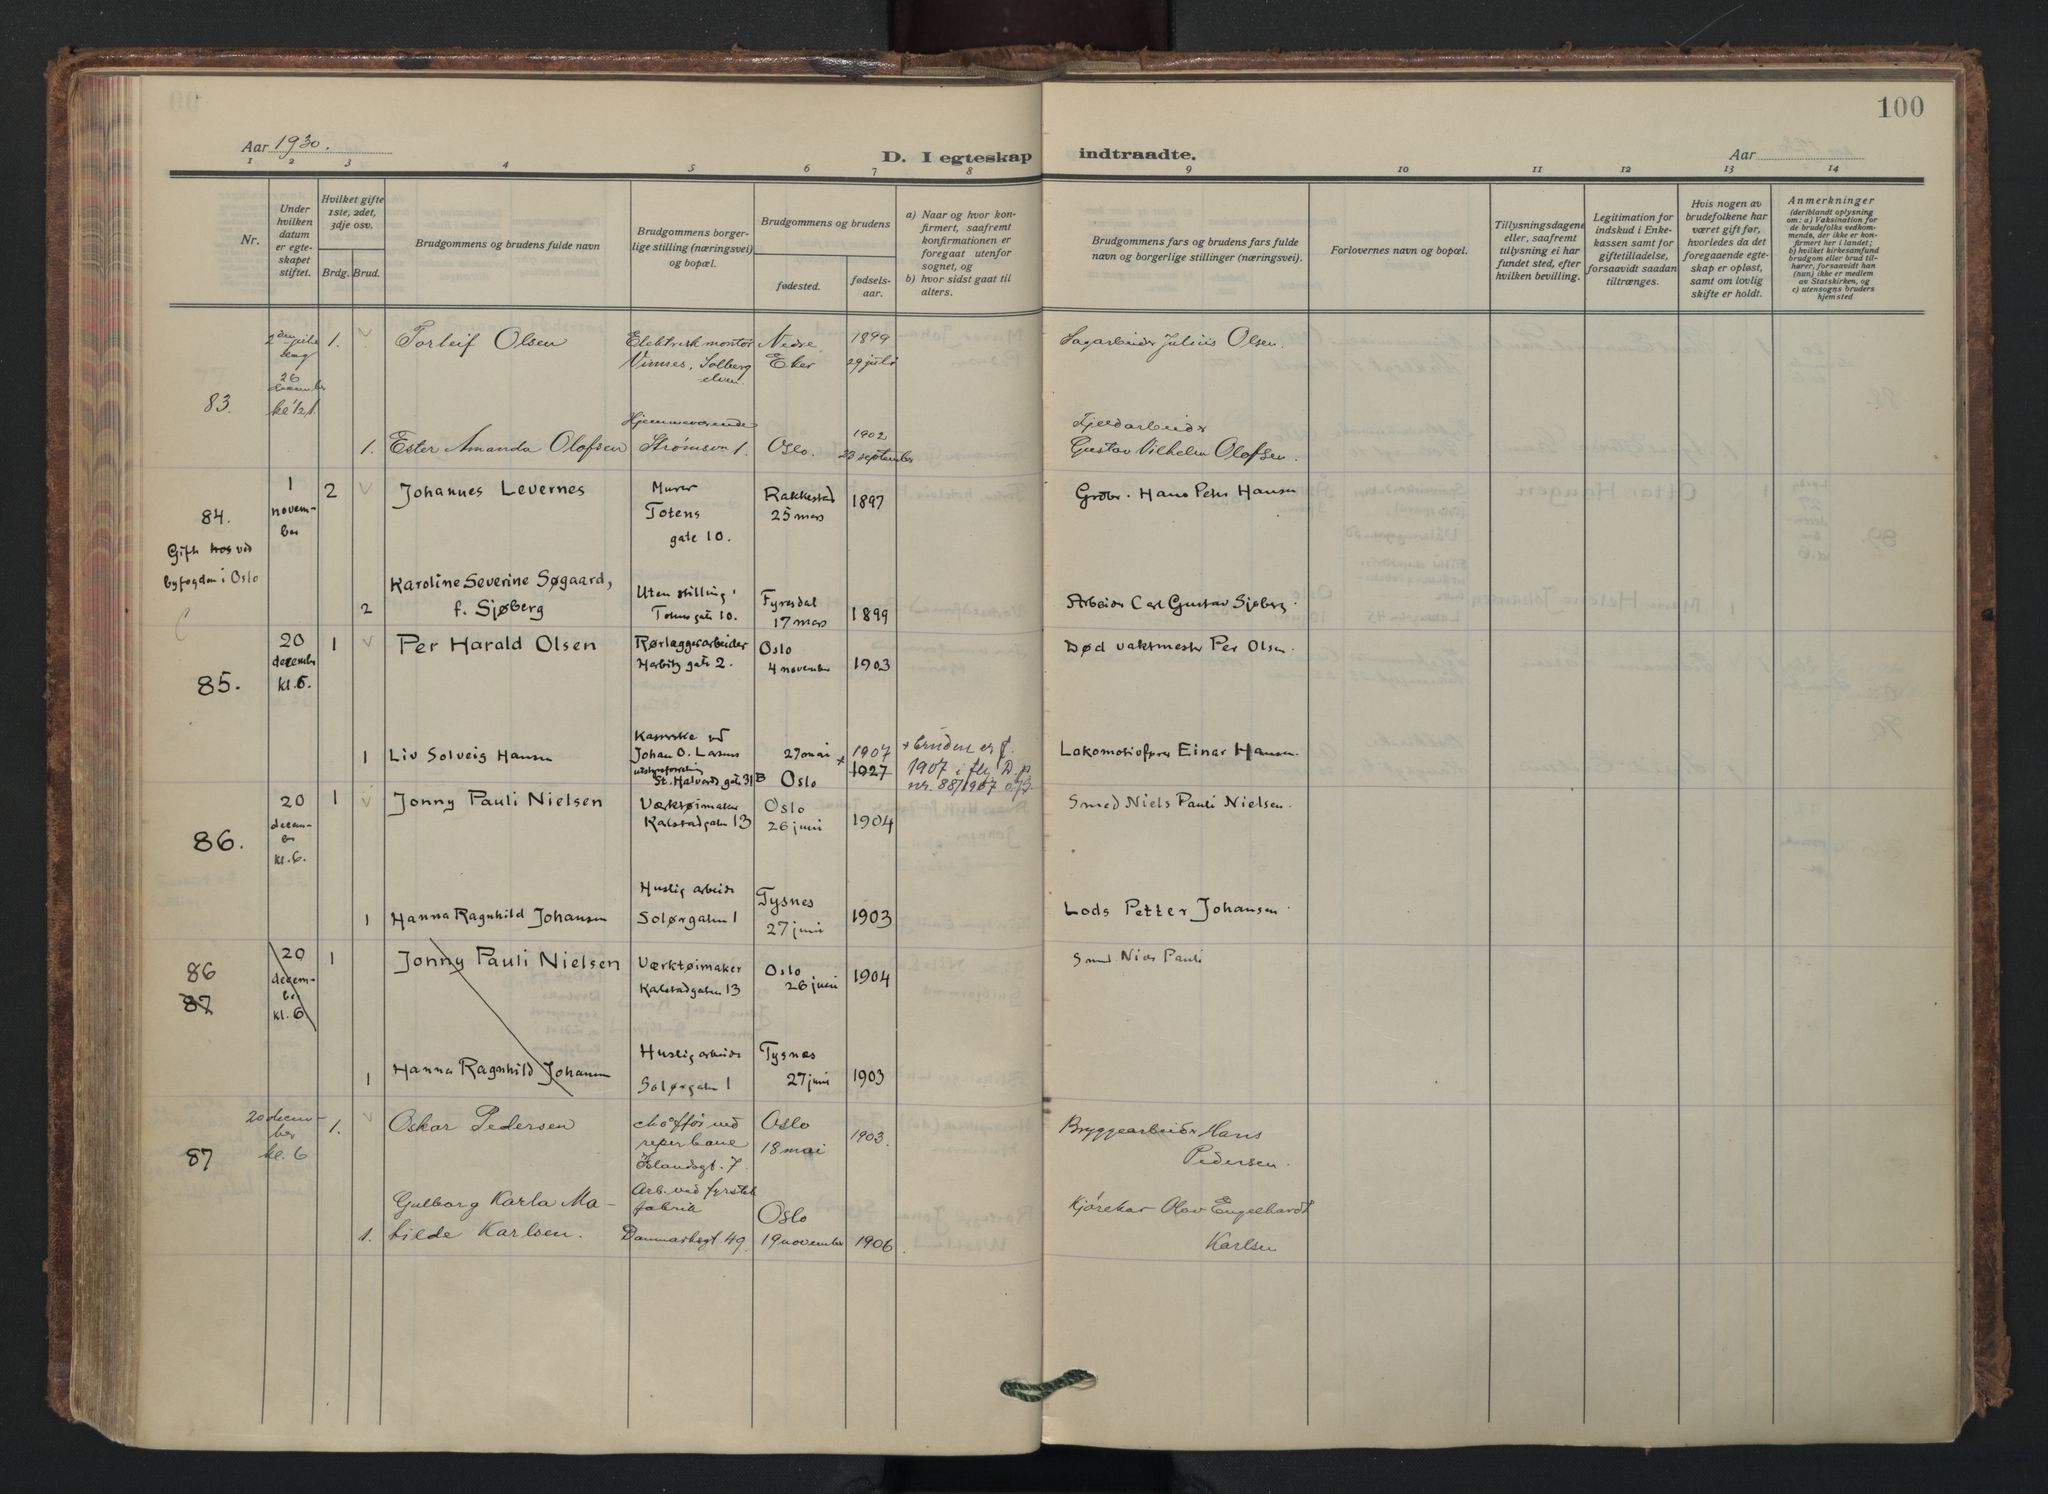 100
Aar 1930.
D. I egteskap indtraadte.
Aar
1 2 3 4 5 6 7 8 9 10 11 12 13 14
Nr.
Under hvilken datum er egteskapet stiftet.
Hvilket gifte 1ste, 2det, 3dje osv.
Brdg. Brud.
Brudgommens og brudens fulde navn
Brudgommens borgerlige stilling (næringsvei) og bopæl.
Brudgommens og brudens
fødested.
fødselsaar.
a) Naar og hvor konfirmert, saafremt konfirmationen er foregaat utenfor sognet, og
b) hvor sidst gaat til alters.
Brudgommens fars og brudens fars fulde navn og borgerlige stillinger (næringsvei).
Forlovernes navn og bopæl.
Tillysningsdagene eller, saafremt tillysning ei har fundet sted, efter hvilken bevilling.
Legitimation for indskud i Enkekassen samt for giftetilladelse, forsaavidt saadan tiltrænges.
Hvis nogen av brudefolkene har været gift før, hvorledes da det foregaaende egteskap er opløst, samt om lovlig skifte er holdt.
Anmerkninger
(deriblandt oplysning om: a) Vaksination for de brudefolks vedkommende, der ikke er konfirmert her i landet; b) hvilket kirkesamfund brudgom eller brud tilhører, forsaavidt han (hun) ikke er medlem av Statskirken, og c) utensogns bruders hjemsted
83.
2den jule
dag
26
december
1.
Torleif Olsen
Elektrisk montør
Vinnes, Solberg
elven.
Nedre
Eker
1899
29 juli
Sagarbeider Julius Olsen.
1.
Ester Amanda Olofsen
Hjemmeværende
Strømsvn 1.
Oslo.
1902
23 september
Fjeldarbeider
Gustav Vilhelm Olofsen.
84.
Gift hos ved
byfogden i Oslo
1
novem-
ber
2
Johannes Levernes
Murer
Totens
gate 10.
Rakkestad
25 mars
1897
Grdbr. Hans Peter Hansen
2
Karoline Severine Søgaard,
f. Sjøberg
Uten stilling
Totens gate 10.
Fyresdal
17 mars
1899
Arbeider Carl Gustav Sjøberg.
85.
20
december
kl. 5.
1
Per Harald Olsen
Rørlæggerarbeider
Herbitz gate 2.
Oslo
4 november
1903
Død vaktmester Per Olsen.
1
Liv Solveig Hansen
Johan O. Larsens
St. Halvards gate 31 B
27 mai
Oslo
+
1907
1927
+ bruden er f.
1907 i flg. D. p.
nr. 88/1907
Lokomotivfører Einar Hansen.
86.
20
decem-
ber
kl. 6.
1
Jonny Pauli Nielsen
Værktøimaker
Kalstadgaten 13
Oslo
26 juni
1904
Smed Niels Pauli Nielsen.
1
Hanna Ragnhild Johansen
Huslig arbeide
Solørgaten 1
Tysnes
27 juni
1903
Lods Petter Johansen.
86
87
20
decem-
ber
kl. 6
1
Jonny Pauli Nielsen
Værktøimaker
Kalstadgaten 13
Oslo
26 juni
1904
Smed Niels Pauli
1
Hanna Ragnhild Johansen
Huslig arbeide
Solørgaten 1
Tysnes
27 juni
1903
87
20 decem-
ber
kl. 6
1.
Oskar Pedersen
chaffør ved
reperbane
Islandsgt. 7
Oslo
18 mai
1903.
Bryggearbeider Hans
Pedersen.
1.
Gulborg Karla Ma-
tilde Karlsen.
Arb. ved fyrstik
fabrik
Danmarksgt. 49
Oslo
19 november
1906.
Kjørekar Olav Engelhardt
Karlsen